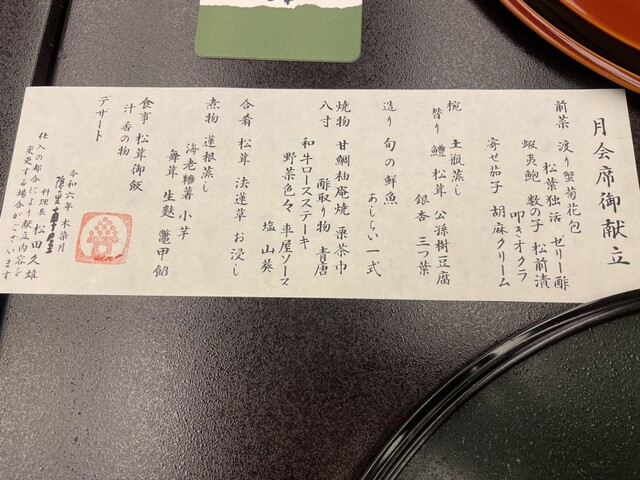 月会席御献立
前菜 渡り蟹菊花包 ゼリー酢
松葉独活 叩きオクラ
蝦夷鮑 数の子 松前漬
寄せ茄子 胡麻クリーム
椀 土瓶蒸し
替り 鱧 松茸 公孫樹豆腐
銀杏 三つ葉
造り 旬の鮮魚
あしらい一式
焼物 甘鯛柚庵焼 栗茶巾
八寸 酢取り物 青唐
和牛ロースステーキ
野菜色々 車屋ソース
塩 山葵
合肴 松茸 法蓮草 お浸し
煮物 蓮根蒸し
海老糝薯 小芋
舞茸 生麩 鼈甲餡
食事 松茸御飯
汁 香の物
デザート
令和六年 木染月
料理長 松田久雄
仕入の都合により献立内容を
変更する場合がございます